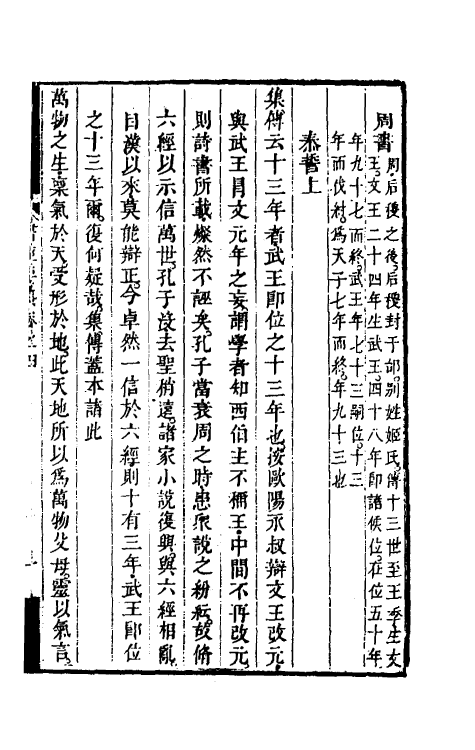 周書周后稷之後后稷封于邰别姓姬氏傳十三世至王季生文
王文王二十四年生武王四十八年即諸侯位在位五十年
年九十七而終武王年七十三嗣位十三
年而伐紂爲天子七年而終年九十三也
泰誓上
集傳云十三年者武王即位之十三年也按歐陽永叔辯文王改元
與武王冒文元年之妄謂學者知西伯生不稱王中間不再改元
則詩書所載燦然不誣矣孔子當衰周之時患衆說之紛紜故脩
六經以示信萬世孔子没去聖稍遠諸家小說復興與六經相亂
自漢以來莫能辯正今卓然一信於六經則十有三年武王即位
之十三年爾復何疑哉集傳蓋本諸此
萬物之生稟氣於天受形於地此天地所以爲萬物父母靈以氣言